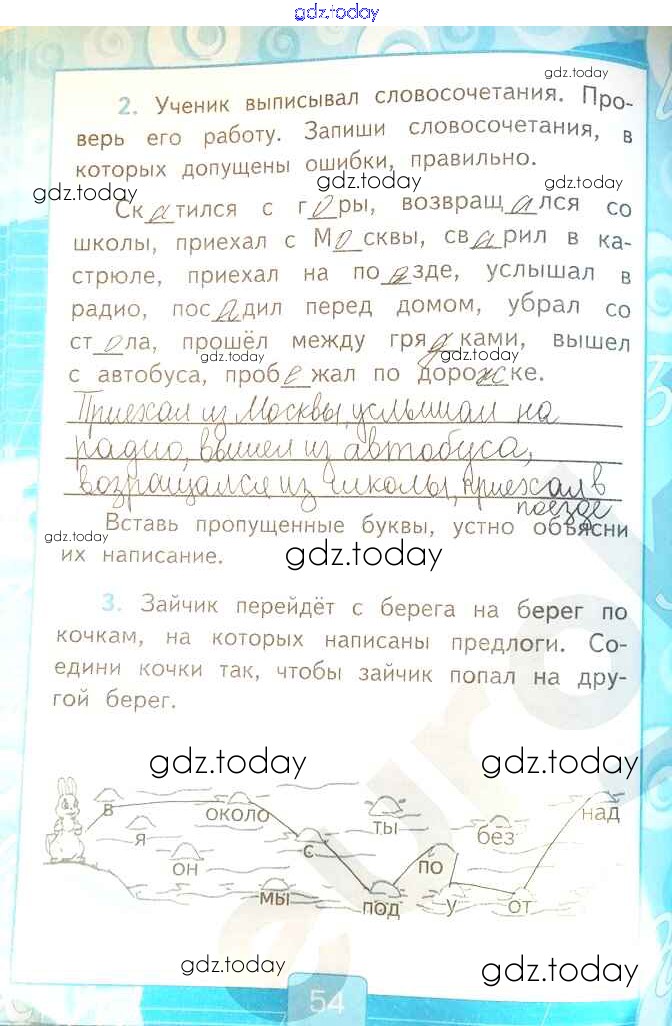 gdz.today
gdz.today
2. Ученик выписывал словосочетания. Про-
верь его работу. Запиши словосочетания, в
которых допущены ошибки, правильно.
gdz.today gdz.today gdz.today
Скатился с горы, возвращался со
школы, приехал с Москвы, сварил в ка-
стрюле, приехал на поезде, услышал в
радио, посадил перед домом, убрал со
стола, прошёл между грядками, вышел
gdz.today gdz.today
с автобуса, пробежал по дорожке.
Приехал из Москвы, услышал на
радио, вышел из автобуса,
возвращался из школы, приехал в
поезде
Вставь пропущенные буквы, устно объясни
gdz.today gdz.today
их написание.
3. Зайчик перейдёт с берега на берег по
кочкам, на которых написаны предлоги. Со-
едини кочки так, чтобы зайчик попал на дру-
гой берег.
gdz.today gdz.today
в около ты без над
я с по
он мы под у от
gdz.today gdz.today
54